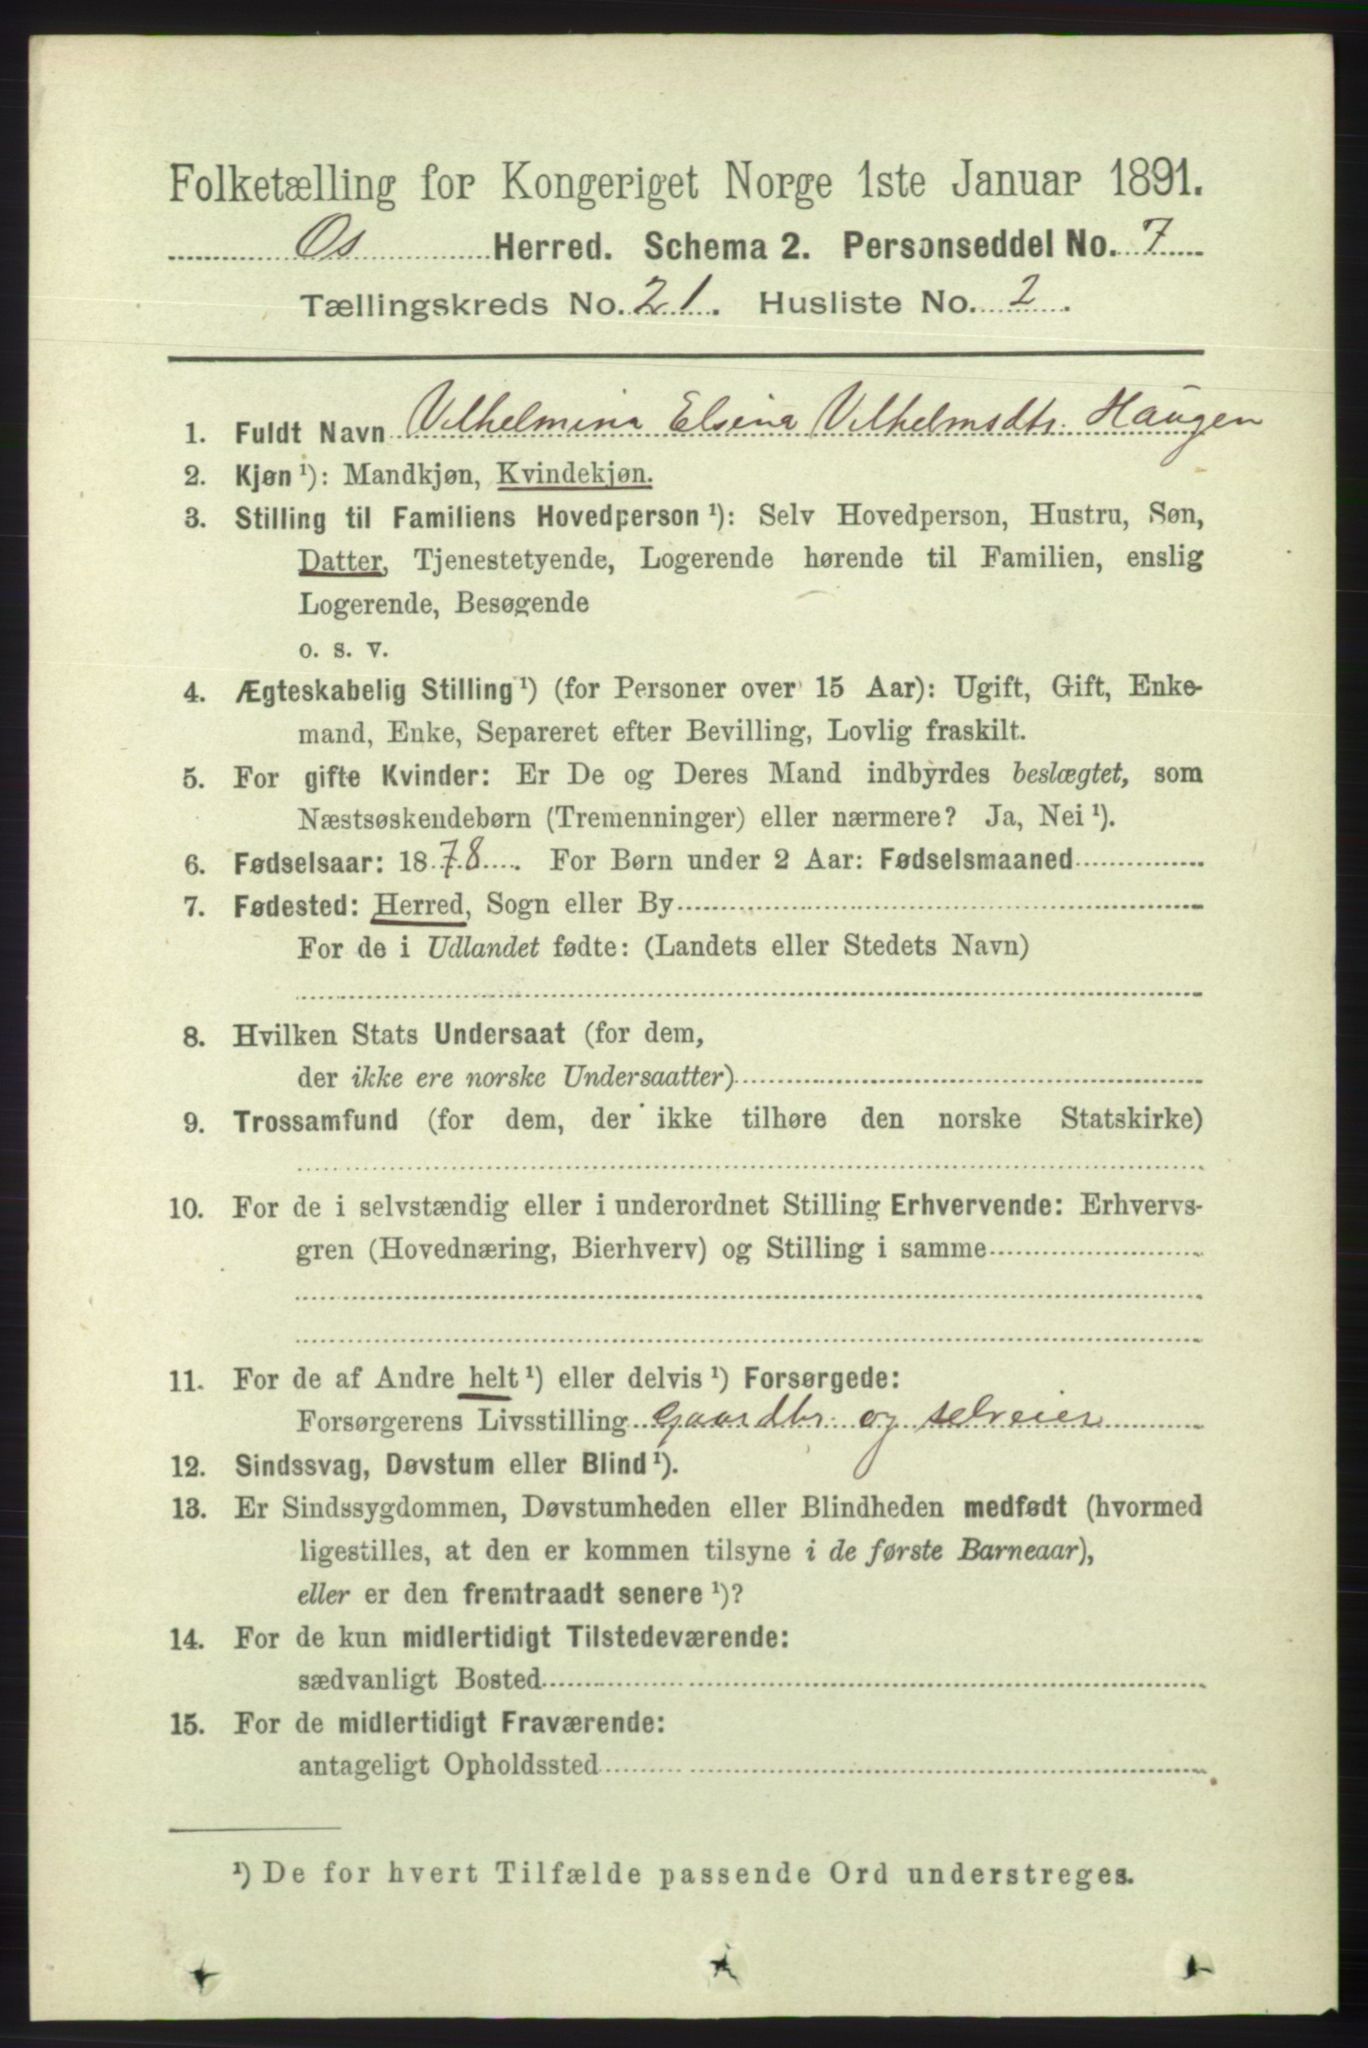 Folketælling for Kongeriget Norge 1ste Januar 1891.
Os Herred. Schema 2. Personseddel No. 7
Tællingskreds No. 21. Husliste No. 2.
1. Fuldt Navn Vilhelmina Elsina Vilhelmsdtr. Haugen
2. Kjøn ¹): Mandkjøn, Kvindekjøn.
3. Stilling til Familiens Hovedperson ¹): Selv Hovedperson, Hustru, Søn,
Datter, Tjenestetyende, Logerende hørende til Familien, enslig
Logerende, Besøgende
o. s. v.
4. Ægteskabelig Stilling ¹) (for Personer over 15 Aar): Ugift, Gift, Enke-
mand, Enke, Separeret efter Bevilling, Lovlig fraskilt.
5. For gifte Kvinder: Er De og Deres Mand indbyrdes beslægtet, som
Næstsøskendebørn (Tremenninger) eller nærmere? Ja, Nei ¹).
6. Fødselsaar: 1878. For Børn under 2 Aar: Fødselsmaaned
7. Fødested: Herred, Sogn eller By
For de i Udlandet fødte: (Landets eller Stedets Navn)
8. Hvilken Stats Undersaat (for dem,
der ikke ere norske Undersaatter)
9. Trossamfund (for dem, der ikke tilhøre den norske Statskirke)
10. For de i selvstændig eller i underordnet Stilling Erhvervende: Erhvervs-
gren (Hovednæring, Bierhverv) og Stilling i samme
11. For de af Andre helt ¹) eller delvis ¹) Forsørgede:
Forsørgerens Livsstilling Gaardbr. og selveier
12. Sindssvag, Døvstum eller Blind ¹).
13. Er Sindssygdommen, Døvstumheden eller Blindheden medfødt (hvormed
ligestilles, at den er kommen tilsyne i de første Barneaar),
eller er den fremtraadt senere ¹)?
14. For de kun midlertidigt Tilstedeværende:
sædvanligt Bosted
15. For de midlertidigt Fraværende:
antageligt Opholdssted
¹) De for hvert Tilfælde passende Ord understreges.